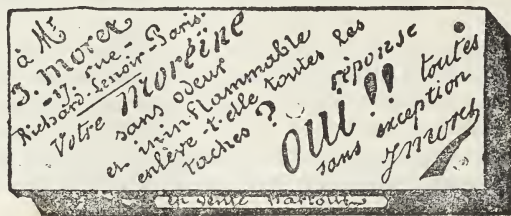 à Mr
J. Morex
-17, rue-
Richard-Lenoir-Paris-
Votre Moréïne
sans odeur
et ininflammable
enlève-t-elle toutes les
taches ?
réponse
OUI !! toutes
sans exception
J morex
en vente Partout